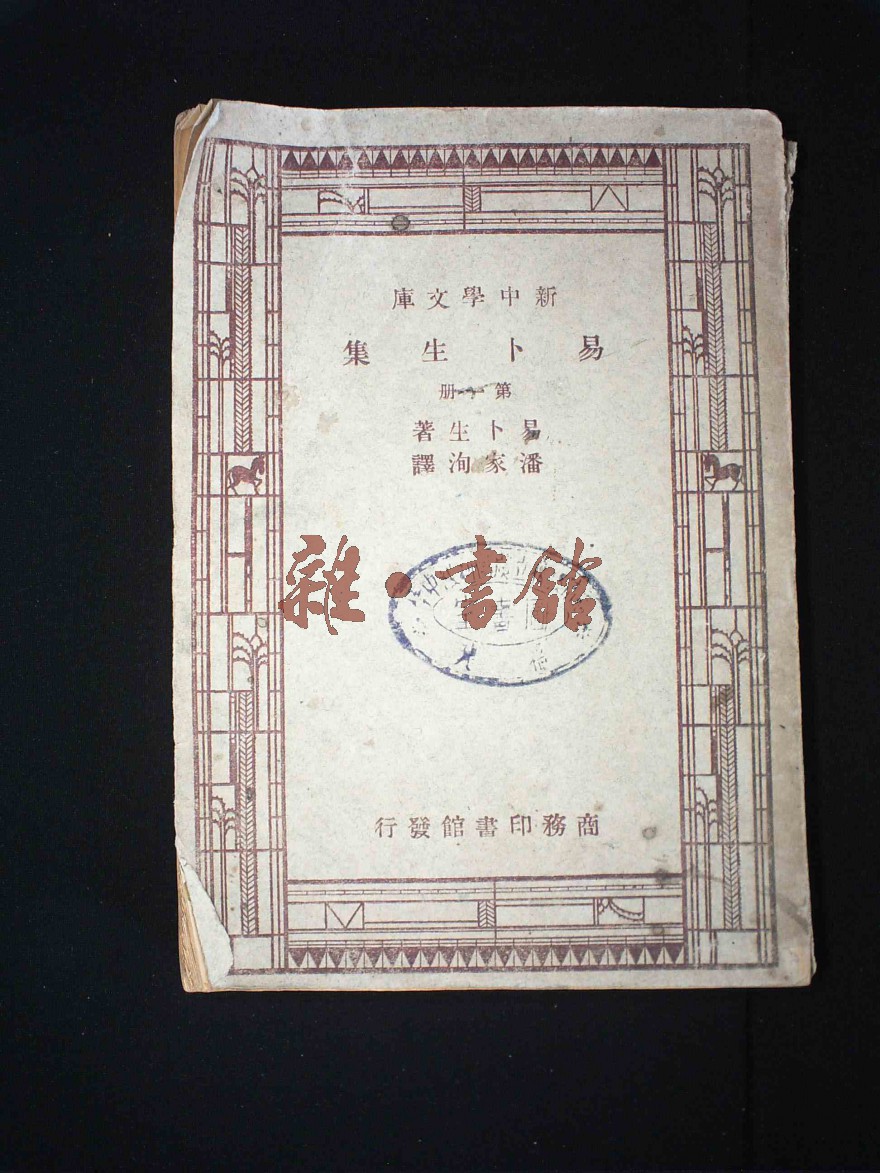 新中學文庫
易卜生集
第一册
易卜生著
潘家洵譯
雜·書館
商務印書館發行